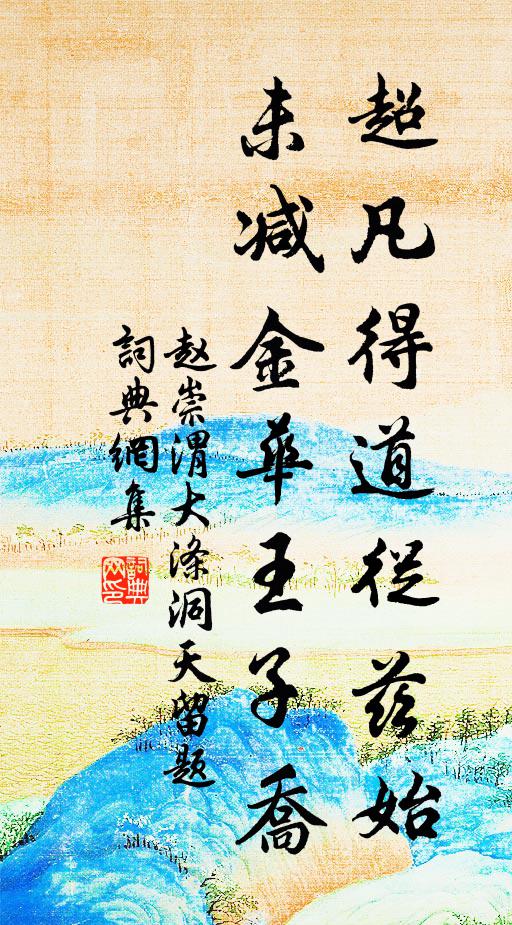 超凡得道從茲始
未減金華王子喬
赵崇渭大涤洞天留题
詞典網集
詞典網印